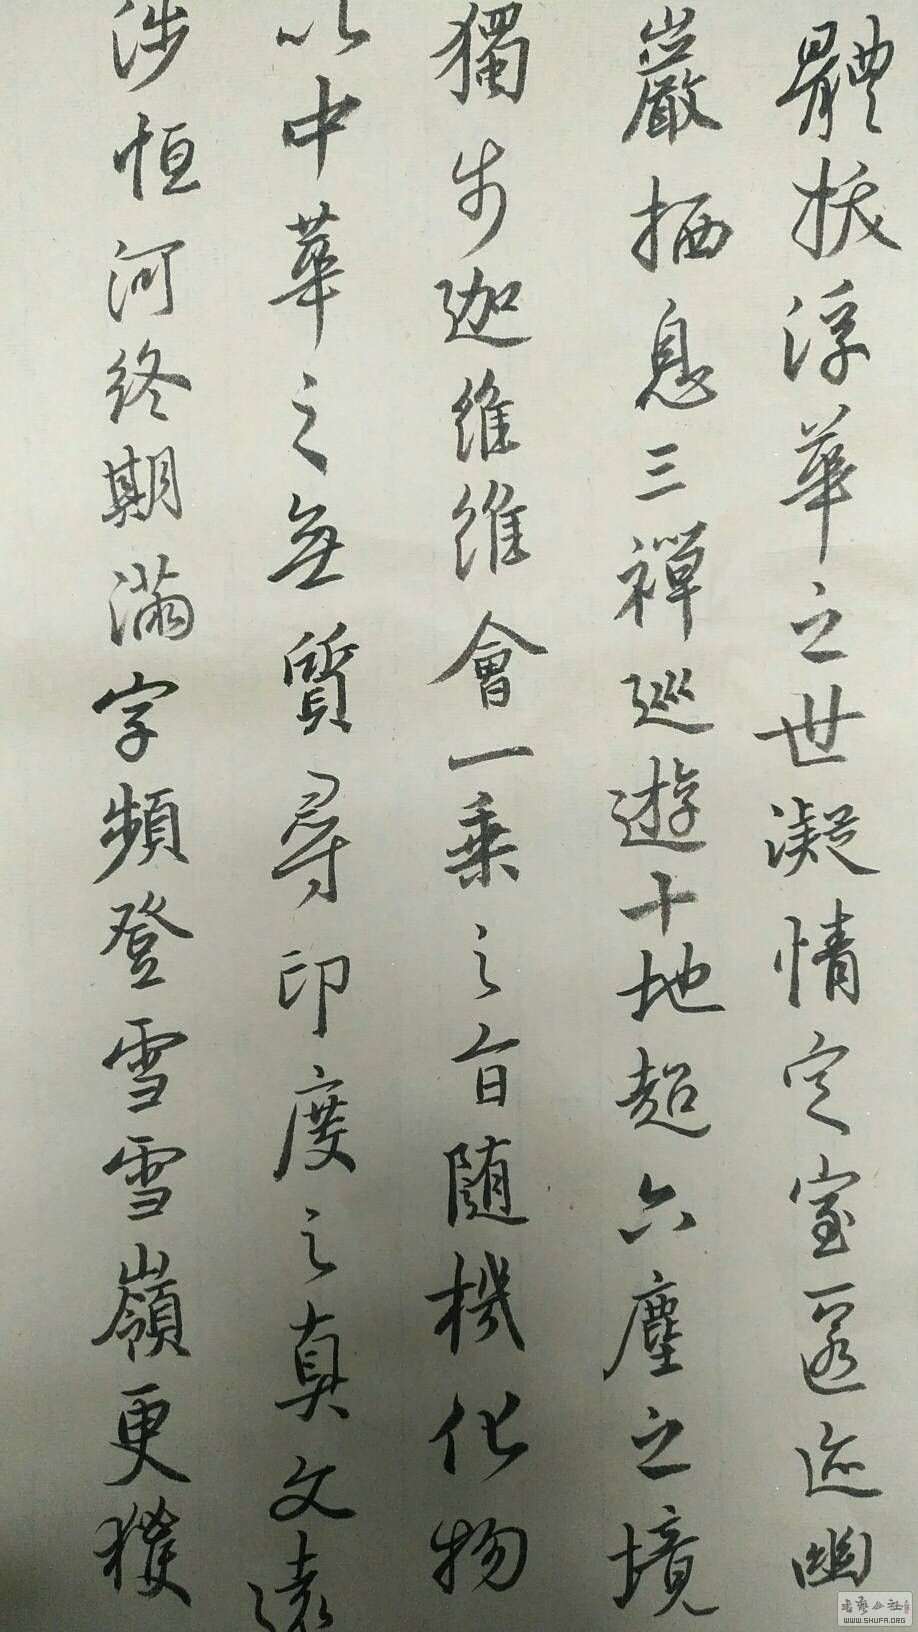 體拔浮華之世凝情定室匿迹幽
巖栖息三禪巡遊十地超六塵之境
獨步迦維維會一乘之旨随機化物
以中華之無質尋印度之真文遠
涉恒河終期滿字頻登雪雪嶺更獲
WWW.SHUFA.ORG